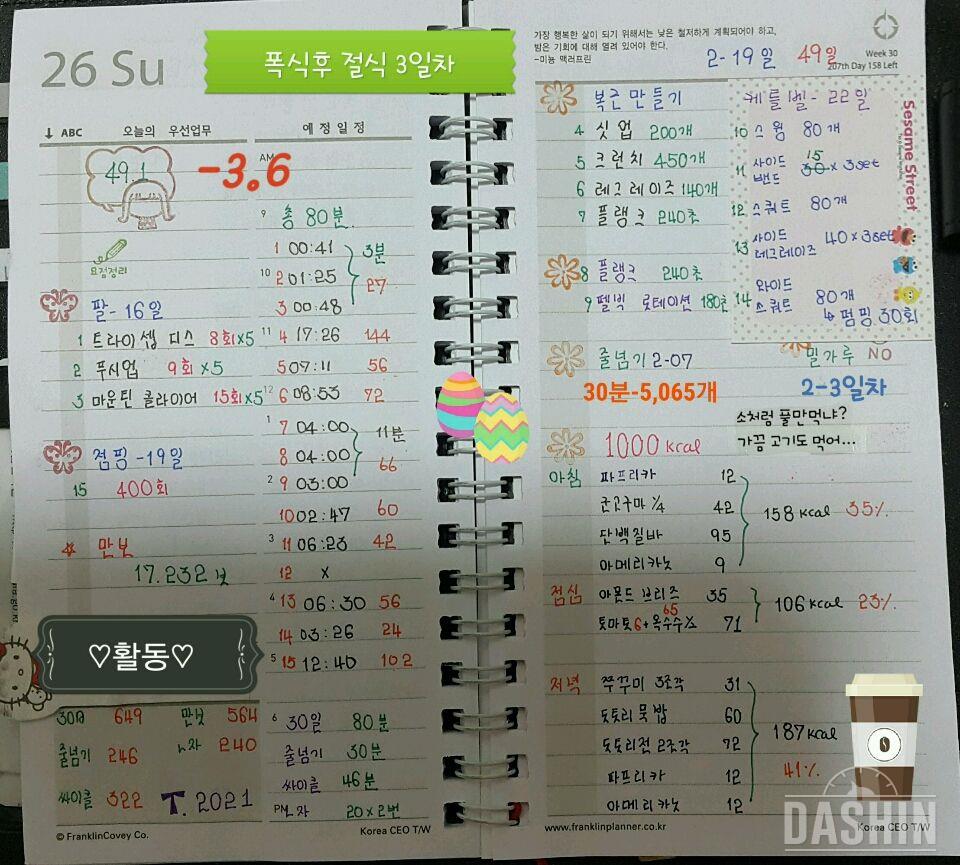 폭식후 절식 3일차
26 Su
↓ ABC 오늘의 우선업무
예 정 일 정
49.1
-3.6
AM
9 총 80분
요점정리
1 00:41
10 2 01:25
3 00:48
3분
27
팔- 16일
1 트라이셉 디스 8회×5
2 푸시업 9회×5
3 마운틴 클라이머 15회×5
11 4 17:26 144
5 07:11 56
12 6 08:53 72
1 7 04:00
8 04:00
2 9 03:00
11분
66
10 02:47 60
3 11 06:23 42
12 x
4 13 06:30 56
14 03:26 24
5 15 12:40 102
점핑 -19일
15 400회
만보
17.232 보
♡활동♡
30일 649 만보 564
줄넘기 246 240
싸이클 322 T. 2021
6 30일 80분
줄넘기 30분
싸이클 46분
PM 20×2번
© FranklinCovey Co.
Korea CEO T/W
가장 행복한 삶이 되기 위해서는 낮은 철저하게 계획되어야 하고,
밤은 기회에 대해 열려 있어야 한다.
-미뇽 맥러프린
2-19일 49일
Week 30
207th Day 158 Left
복근 만들기
4 싯업 200개
5 크런치 450개
6 레그레이즈 140개
7 플랭크 240초
8 플랭크 240초
9 펠빅 롯테이션 180초
케틀벨- 22일
10 스윙 80개
11 사이드 밴드 15 30×3set
12 스쿼트 80개
13 사이드 레그레이즈 40×3set
14 와이드 스쿼트 80개
↳ 펌핑 30회
Sesame Street
줄넘기 2-07
30분-5,065개
밀가루 NO
2-3일차
소처럼 풀만먹냐?
가끔 고기도 먹어...
1000 kcal
아침 파프리카 12
군고구마 ¼ 42
단백질바 95
아메리카노 9
158 kcal 35%
점심 아몬드 브리즈 35
65
토마토6+옥수수½ 71
106 kcal 23%
저녁 쭈꾸미 3조각 31
도토리묵밥 60
도토리전 2조각 72
파프리카 12
아메리카노 12
187 kcal
41%
DASHIN
www.franklinplanner.co.kr
Korea CEO T/W